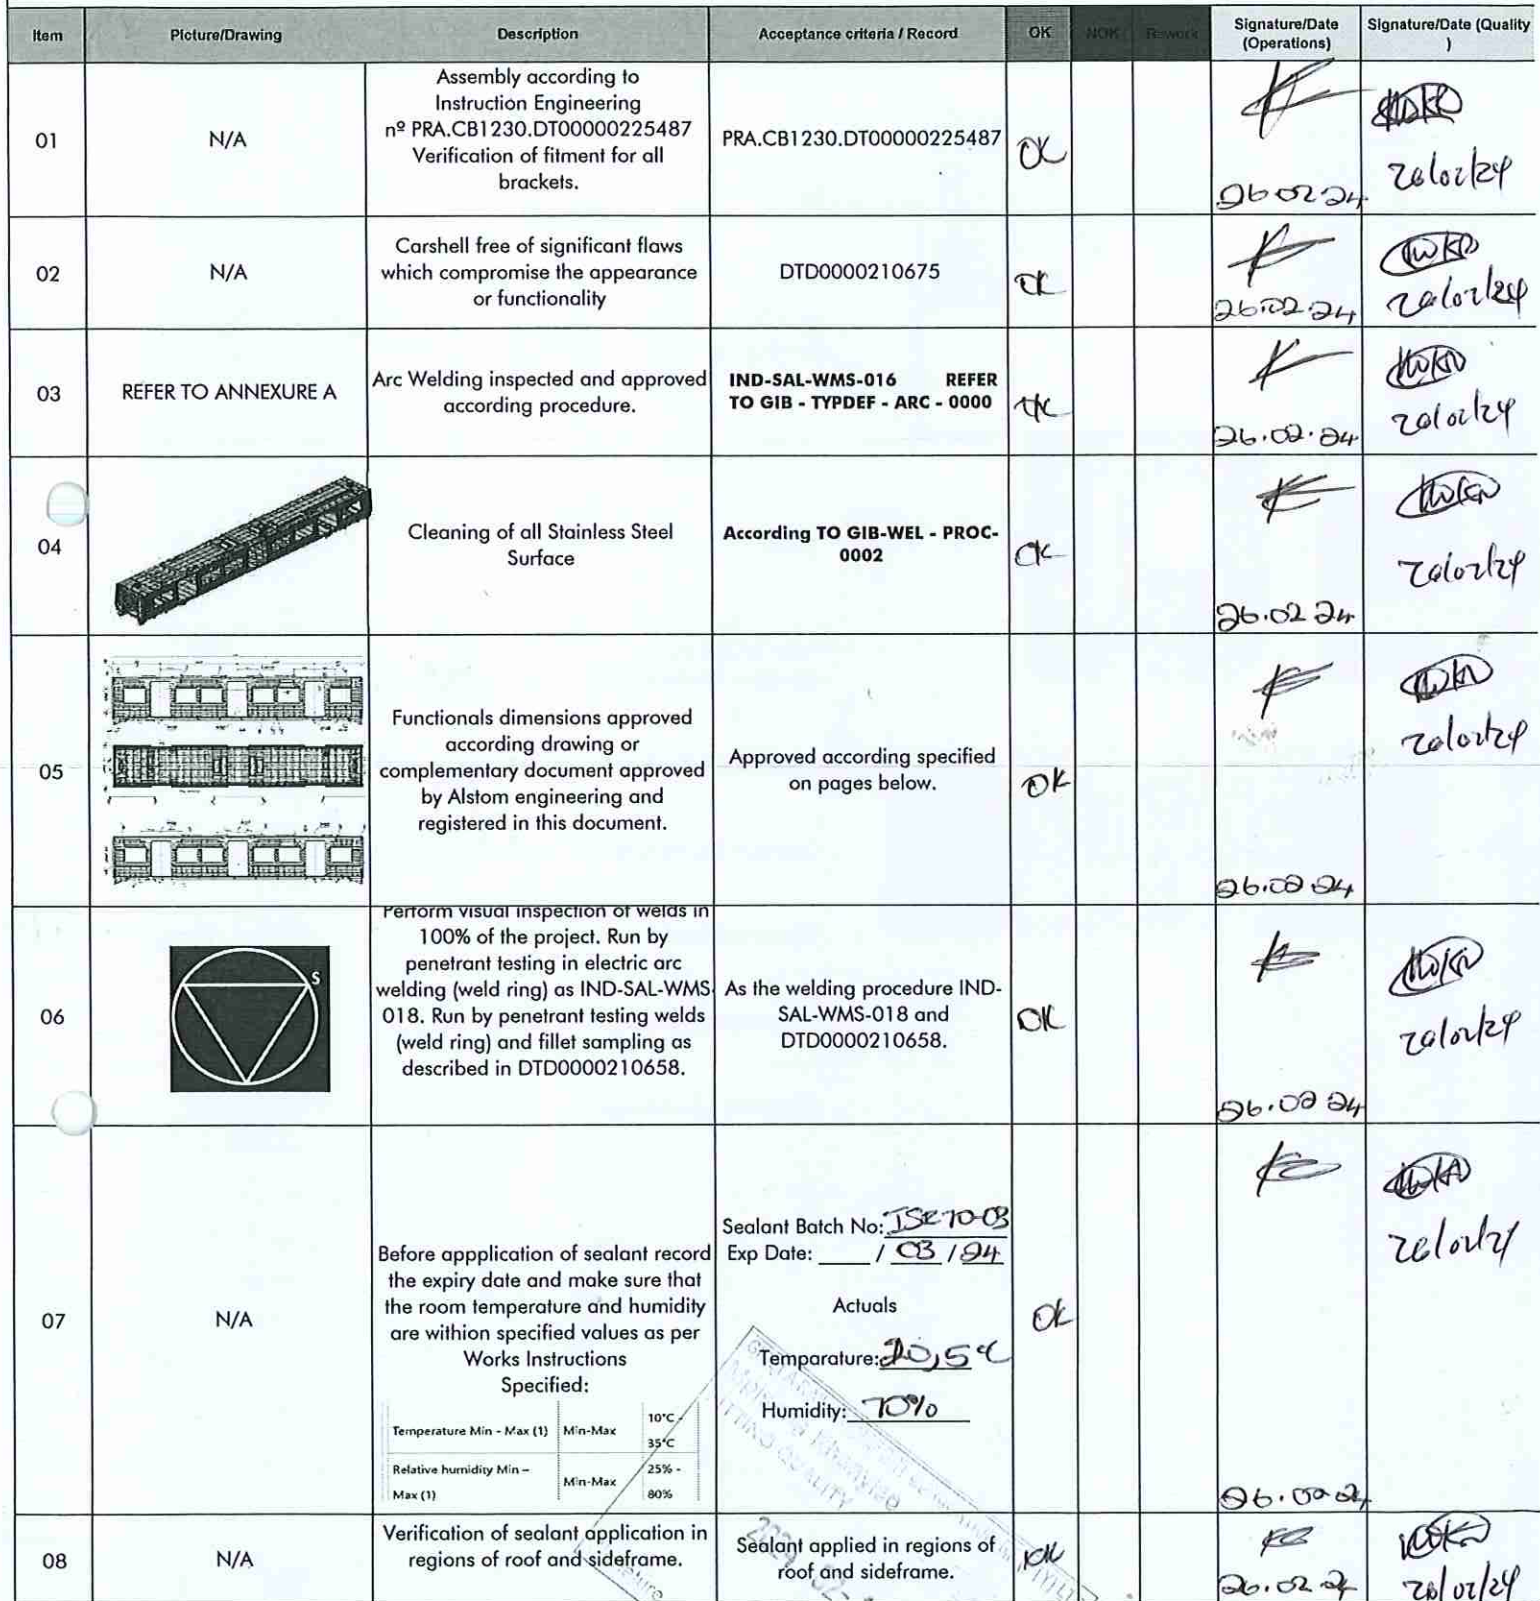 Item Picture/Drawing Description Acceptance criteria / Record OK NOK Rework Signature/Date (Operations) Signature/Date (Quality )
01
N/A
Assembly according to
Instruction Engineering
nº PRA.CB1230.DT00000225487
Verification of fitment for all
brackets.
PRA.CB1230.DT00000225487
OK
26 02 24
26/02/24
02
N/A
Carshell free of significant flaws
which compromise the appearance
or functionality
DTD0000210675
OK
26.02.24
26/02/24
03
REFER TO ANNEXURE A
Arc Welding inspected and approved
according procedure.
IND-SAL-WMS-016 REFER
TO GIB - TYPDEF - ARC - 0000
OK
26.02.24
26/02/24
04
Cleaning of all Stainless Steel
Surface
According TO GIB-WEL - PROC-
0002
OK
26.02 24
26/02/24
05
Functionals dimensions approved
according drawing or
complementary document approved
by Alstom engineering and
registered in this document.
Approved according specified
on pages below.
OK
26.02 24
26/02/24
06
S
Perform visual inspection of welds in
100% of the project. Run by
penetrant testing in electric arc
welding (weld ring) as IND-SAL-WMS-
018. Run by penetrant testing welds
(weld ring) and fillet sampling as
described in DTD0000210658.
As the welding procedure IND-
SAL-WMS-018 and
DTD0000210658.
OK
26.02 24
26/02/24
07
N/A
Before appplication of sealant record
the expiry date and make sure that
the room temperature and humidity
are withion specified values as per
Works Instructions
Specified:
Temperature Min - Max (1) Min-Max 10°C -
35°C
Relative humidity Min –
Max (1) Min-Max 25% -
80%
Sealant Batch No:
Exp Date: ____ / 03 / 24
Actuals
Temparature: 20,5°C
Humidity: 70%
OK
26.02.24
26/02/24
08
N/A
Verification of sealant application in
regions of roof and sideframe.
Sealant applied in regions of
roof and sideframe.
OK
26.02.24
26/02/24